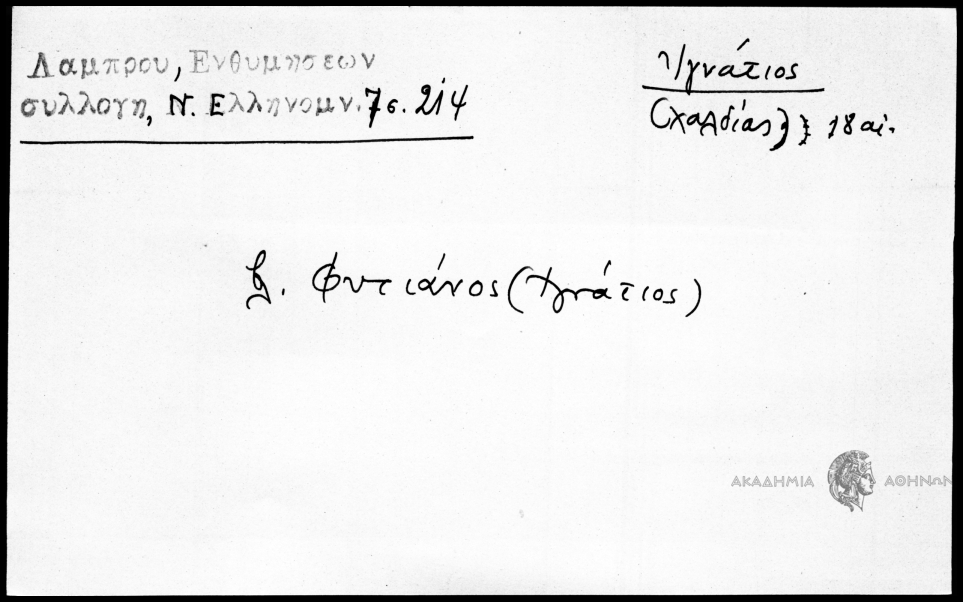 Λαμπρου, Ενθυμησεων
συλλογη, Ν. Ελληνομν. 7 σ. 214
Ἰγνάτιος
(Χαλδίας) 18 αἰ.
β. Φυτιάνος (Ἰγνάτιος)
ΑΚΑΔΗΜΙΑ ΑΘΗΝΩΝ